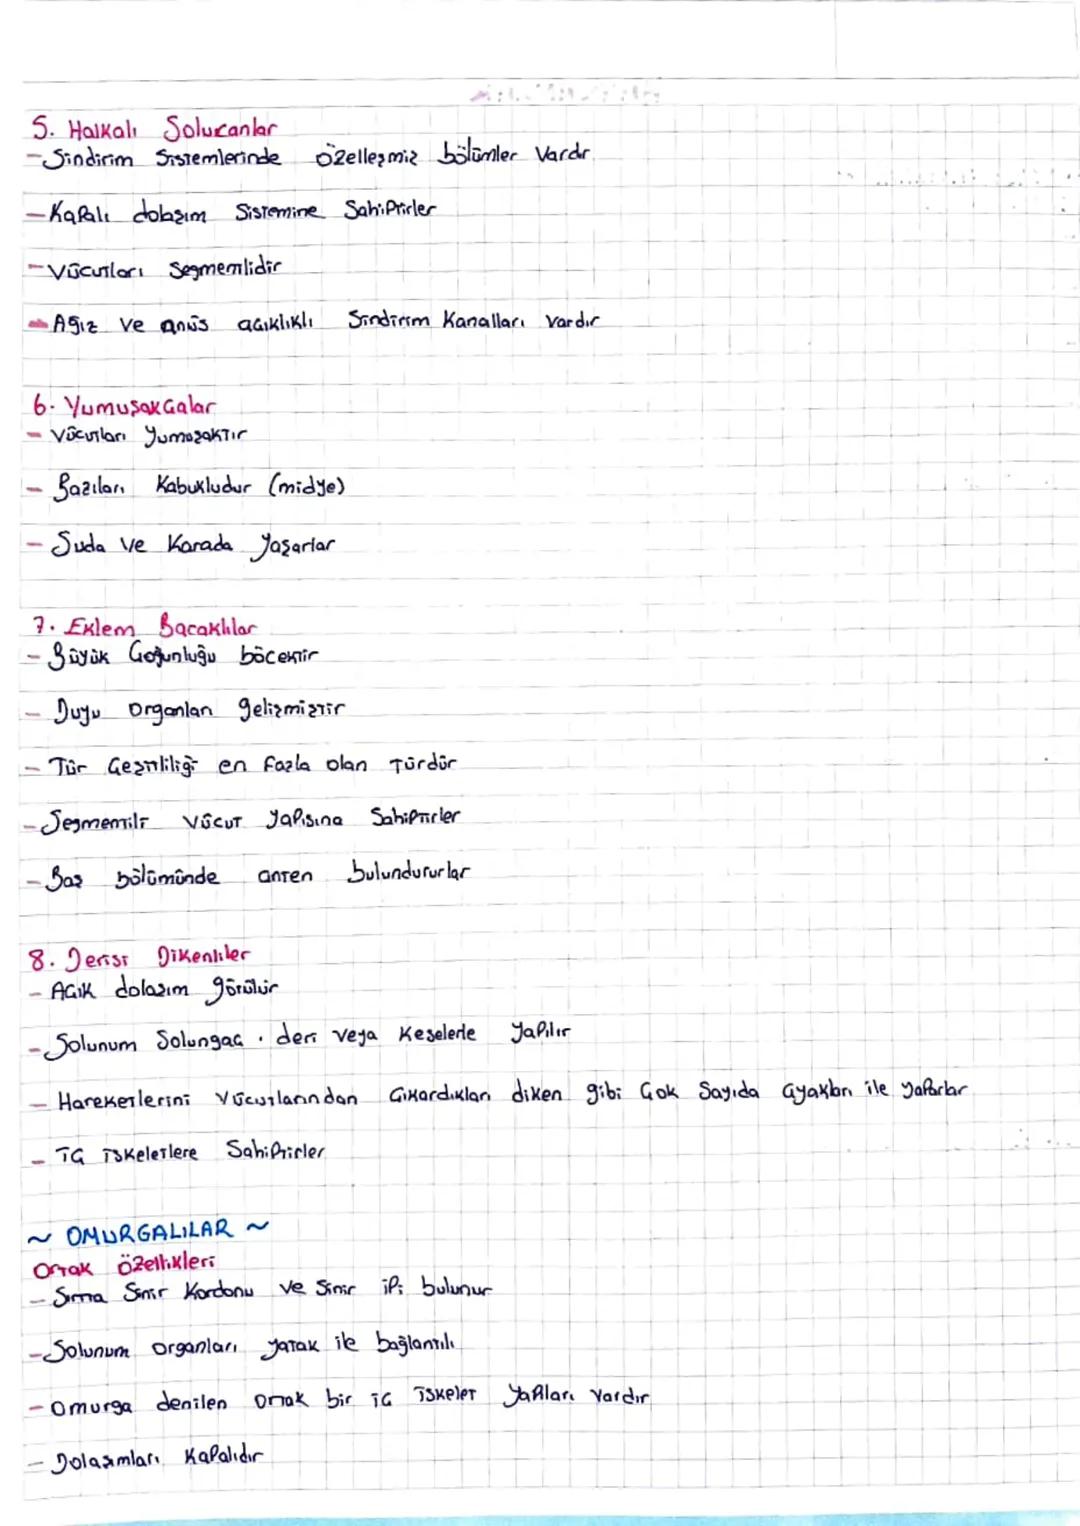 5. Halkalı Solucanlar
- Sindirim Sistemlerinde özelleşmiş bölümler vardır.
- Kapalı dolaşım Sistemine Sahiptirler
- Vücutları Segmentlidir
- Ağız ve anüs açıklıklı Sindirim Kanalları vardır
6. Yumuşakçalar
- Vücutları Yumuşaktır
- Bazıları Kabukludur (midye)
- Suda ve Karada Yaşarlar
7. Eklem Bacaklılar
- Büyük Çoğunluğu böcektir
- Duyu Organları gelişmiştir
- Tür Çeşitliliği en fazla olan Türdür
- Segmentli Vücut yapısına Sahiptirler
- Baş bölümünde anten bulundururlar
8. Derisi Dikenliler
- Açık dolaşım görülür
- Solunum Solungaç . deri veya Keselerle Yapılır
- Hareketlerini Vücutlarından Çıkardıkları diken gibi Çok Sayıda ayakları ile yaparlar
- İç İskeletlere Sahiptirler
~ OMURGALILAR ~
Ortak özellikleri
- Sırtta Sinir Kordonu ve Sinir ipi bulunur
- Solunum organları yutak ile bağlantılı
- Omurga denilen Ortak bir iç iskelet Yapıları Vardır
- Dolaşımları Kapalıdır